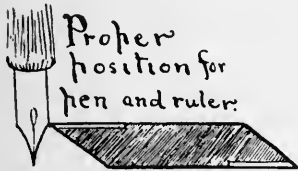 Proper
position for
pen and ruler.